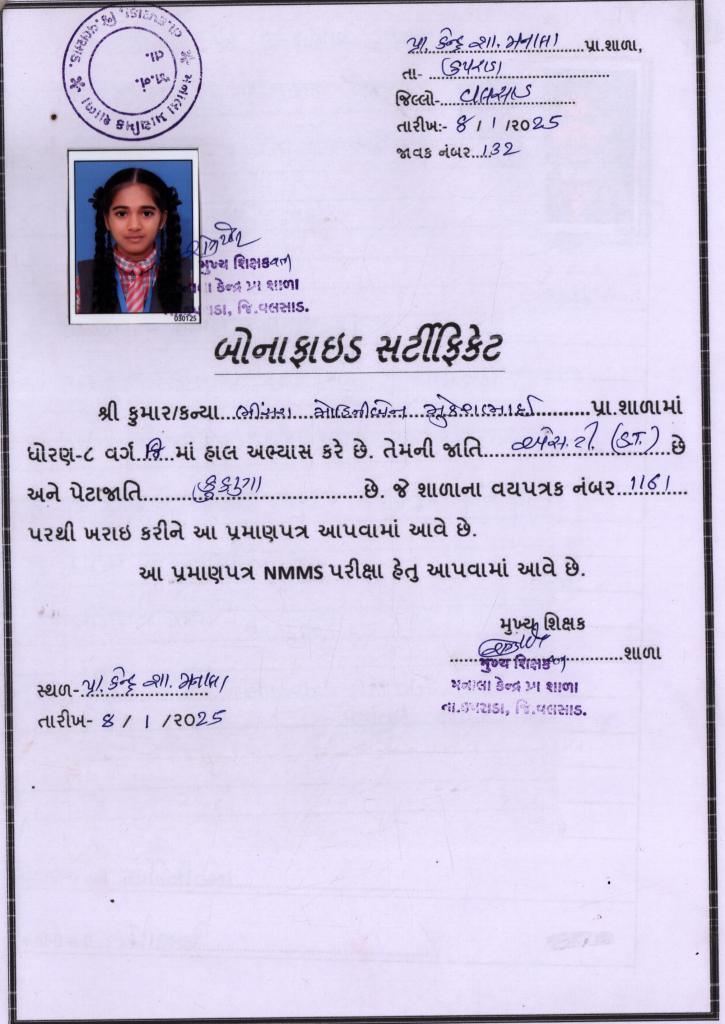 મનાલા પ્રાથમિક શાળા
તા. કપરાડા, જિ. વલસાડ.
પ્રા. કેન્દ્ર શા. મનાલા પ્રા.શાળા,
તા- કપરાડા
જિલ્લો- વલસાડ
તારીખ:- 8 / 1 /૨૦25
જાવક નંબર...132
મુખ્ય શિક્ષક
મનાલા કેન્દ્ર પ્રા શાળા
તા.કપરાડા, જિ.વલસાડ.
030125
બોનાફાઇડ સર્ટીફિકેટ
શ્રી કુમાર/કન્યા મુકેશભાઈ પ્રા.શાળામાં
ધોરણ-૮ વર્ગ માં હાલ અભ્યાસ કરે છે. તેમની જાતિ એસ.ટી. (S.T.) છે
અને પેટાજાતિ કુકણા છે. જે શાળાના વયપત્રક નંબર 1161
પરથી ખરાઇ કરીને આ પ્રમાણપત્ર આપવામાં આવે છે.
આ પ્રમાણપત્ર NMMS પરીક્ષા હેતુ આપવામાં આવે છે.
મુખ્ય શિક્ષક
શાળા
મુખ્ય શિક્ષક
મનાલા કેન્દ્ર પ્રા શાળા
તા.કપરાડા, જિ.વલસાડ.
સ્થળ- પ્રા કેન્દ્ર શા. મનાલા
તારીખ- 8 / 1 /૨૦25